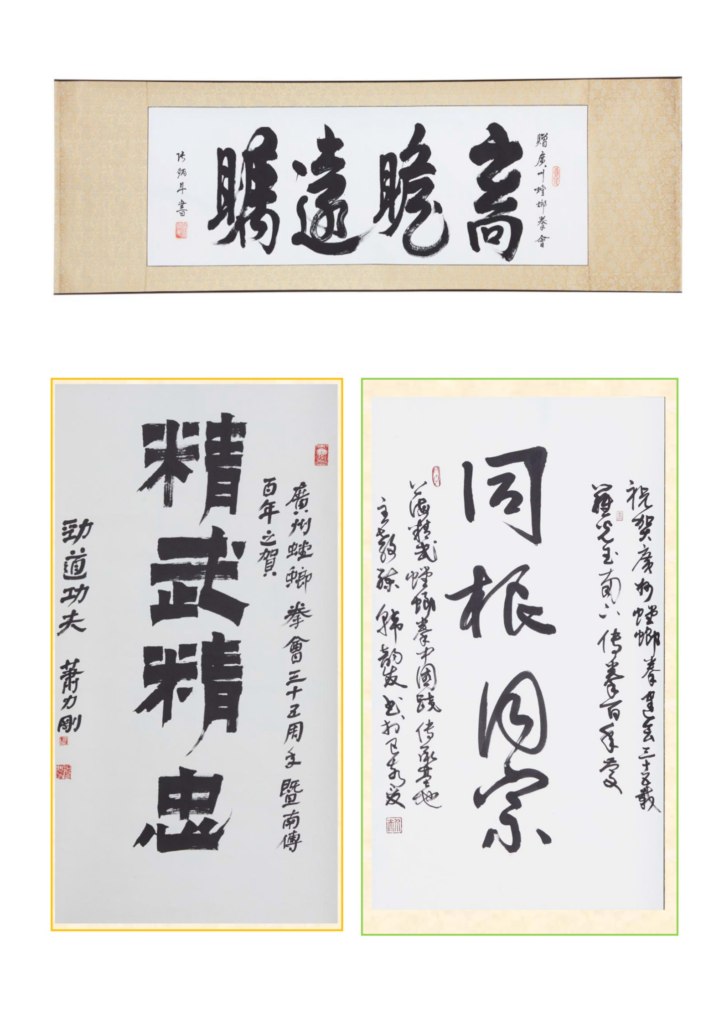 贈廣州螳螂拳會
高瞻遠矚
書
廣州螳螂拳會三十五周年暨南傳
百年之賀
精武精忠
勁道功夫 蕭力剛
祝贺廣州螳螂拳建会三十五載
羅光玉南下传拳百年慶
同根同宗
上海精武螳螂拳中國 传承基地
主教練